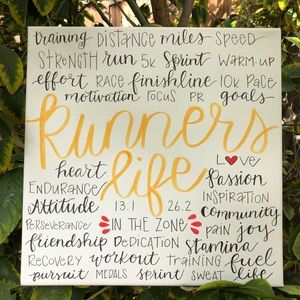 training DISTANCE miles SPEED
STRENGTH run 5K Sprint WARM-UP
effort RACE finishline 10K PACE
motivation FOCUS PR goals
Runners
life
heart LOVE
ENDURANCE Passion
Attitude 13.1 26.2 INSPIRATION
PERSEVERANCE IN THE ZONE Community
friendship DEDICATION PAIN joy
Stamina
RECOVERY WORKOUT TRAINING fuel
pursuit MEDALS sprint SWEAT life